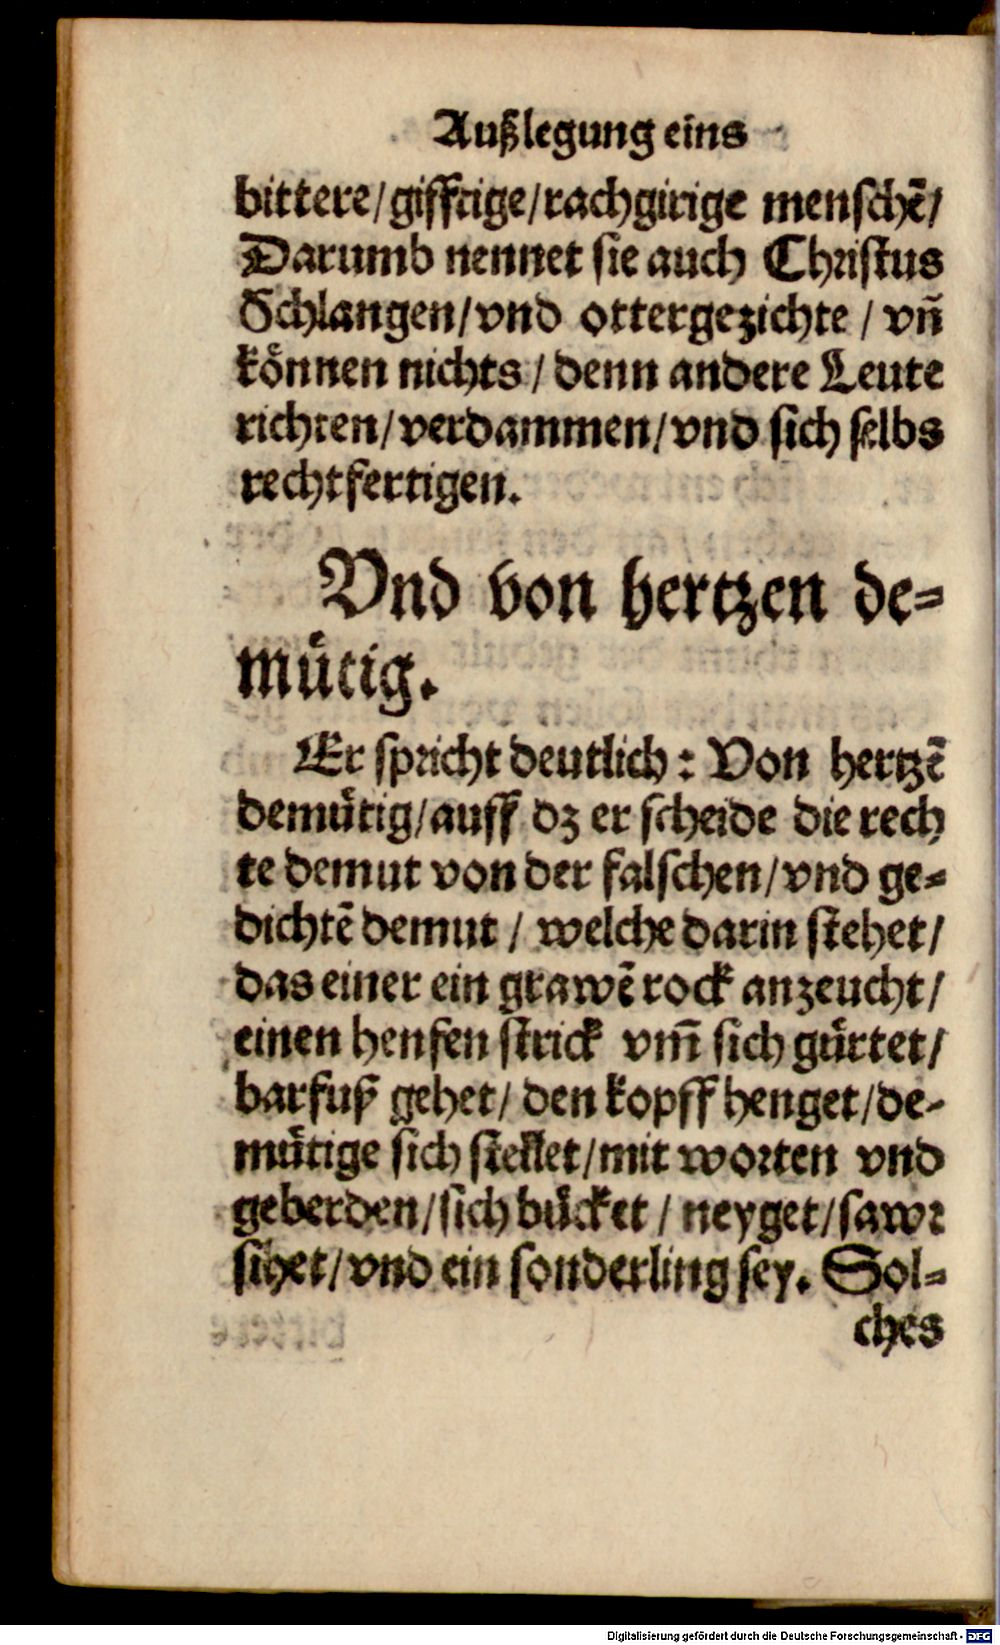 Außlegung eins
bittere/gifftige/rachgirige menschẽ/
Darumb nennet sie auch Christus
Schlangen/vnd ottergezichte / vñ
koͤnnen nichts / denn andere Leute
richten/verdammen/vnd sich selbs
rechtfertigen.
Vnd von hertzen de-
muͤtig.
Er spricht deutlich : Von hertzẽ
demuͤtig/auff dz er scheide die rech
te demut von der falschen/vnd ge-
dichtẽ demut / welche darin stehet/
das einer ein grawẽ rock anzeucht/
einen henfen strick vm̃ sich guͤrtet/
barfuß gehet/ den kopff henget/de-
muͤtige sich stellet/mit worten vnd
geberden/sich buͤcket / neyget/sawr
sihet/vnd ein sonderling sey. Sol-
ches
Digitalisierung gefördert durch die Deutsche Forschungsgemeinschaft - DFG